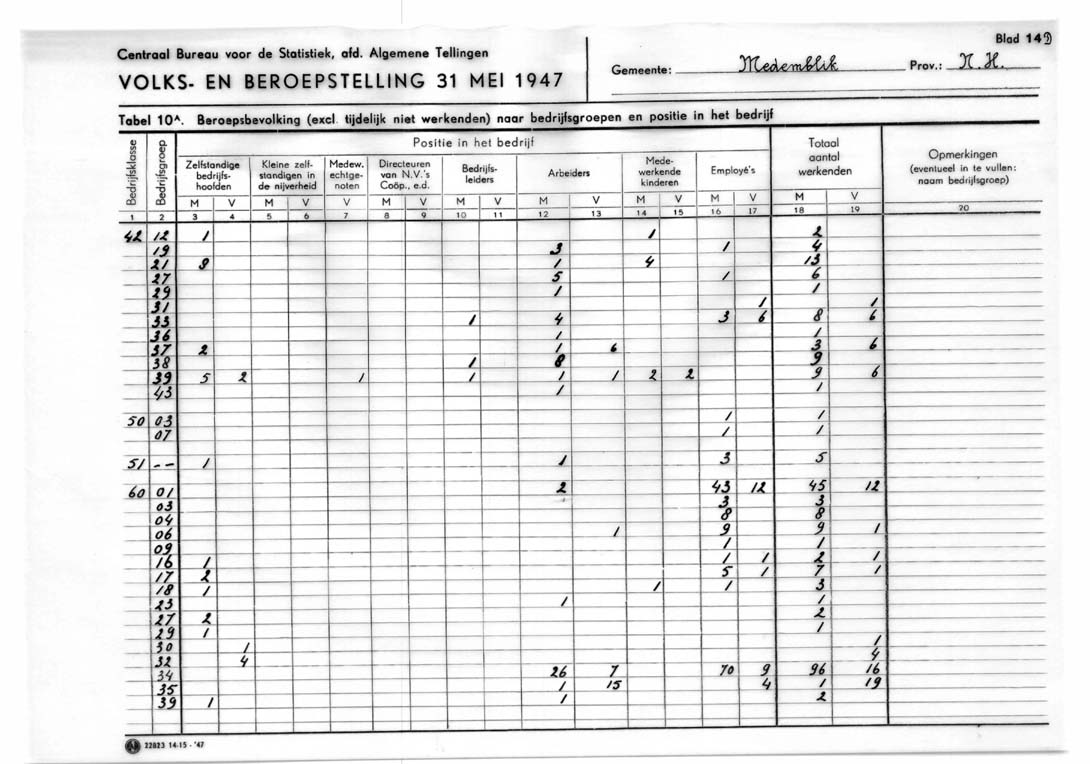 Blad 149
Centraal Bureau voor de Statistiek, afd. Algemene Tellingen
VOLKS- EN BEROEPSTELLING 31 MEI 1947
Gemeente: Medemblik Prov.: N.H.
Tabel 10A. Beroepsbevolking (excl. tijdelijk niet werkenden) naar bedrijfsgroepen en positie in het bedrijf
Bedrijfsklasse Bedrijfsgroep Positie in het bedrijf Totaal aantal werkenden Opmerkingen (eventueel in te vullen: naam bedrijfsgroep)
Zelfstandige bedrijfshoofden Kleine zelfstandigen in de nijverheid Medew. echtgenoten Directeuren van N.V.'s Coöp., e.d. Bedrijfsleiders Arbeiders Medewerkende kinderen Employé's
M V M V V M V M V M V M V M V M V
1 2 3 4 5 6 7 8 9 10 11 12 13 14 15 16 17 18 19 20
42 12 1 1 2
19 3 1 4
21 8 1 4 13
27 5 1 6
29 1 1
31 1 1
33 1 4 3 6 8 6
36 1 1
37 2 1 6 3 6
38 1 8 9
39 5 2 1 1 1 1 2 2 9 6
43 1 1
50 03 1 1
07 1 1
51 -- 1 1 3 5
60 01 2 43 12 45 12
03 3 3
04 8 8
06 1 9 9 1
09 1 1
16 1 1 1 2 1
17 2 5 1 7 1
18 1 1 1 3
23 1 1
27 2 2
29 1 1
30 1 1
32 4 4
34 26 7 70 9 96 16
35 1 15 4 1 19
39 1 1 2
22823 14-15 - '47